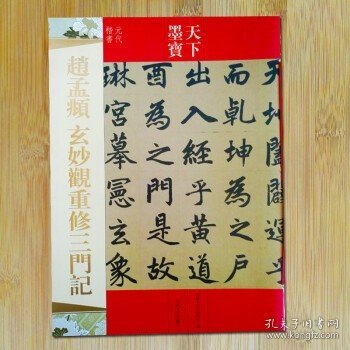 元代
楷書
天下
墨寶
趙孟頫 玄妙觀重修三門記
天
而乾坤為之戶
出入經乎黃道
酉為之門是故
琳宮摹憲玄象
孔夫子旧书网